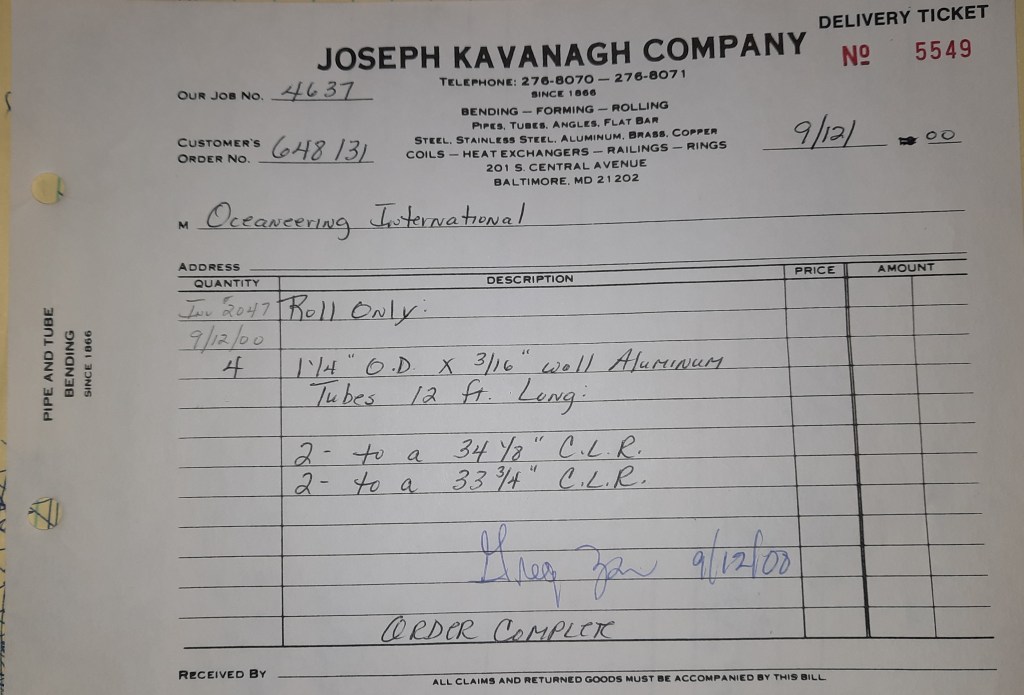 DELIVERY TICKET
JOSEPH KAVANAGH COMPANY
Nº 5549
TELEPHONE: 276-8070 — 276-8071
SINCE 1866
OUR JOB NO. 4637
BENDING — FORMING — ROLLING
PIPES, TUBES, ANGLES, FLAT BAR
STEEL, STAINLESS STEEL, ALUMINUM, BRASS, COPPER
COILS — HEAT EXCHANGERS — RAILINGS — RINGS
201 S. CENTRAL AVENUE
BALTIMORE, MD 21202
CUSTOMER'S
ORDER NO. 648131
9/12/ 00
M Oceaneering International
ADDRESS
QUANTITY DESCRIPTION PRICE AMOUNT
Inv 2047 Roll Only:
9/12/00
4 1 1/4" O.D. X 3/16" wall Aluminum
Tubes 12 ft. Long:
2- to a 34 1/8" C.L.R.
2- to a 33 3/4" C.L.R.
Greg 9/12/00
ORDER COMPLETE
RECEIVED BY
ALL CLAIMS AND RETURNED GOODS MUST BE ACCOMPANIED BY THIS BILL
PIPE AND TUBE
BENDING
SINCE 1866